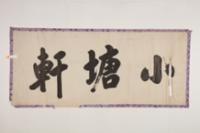 小塘軒